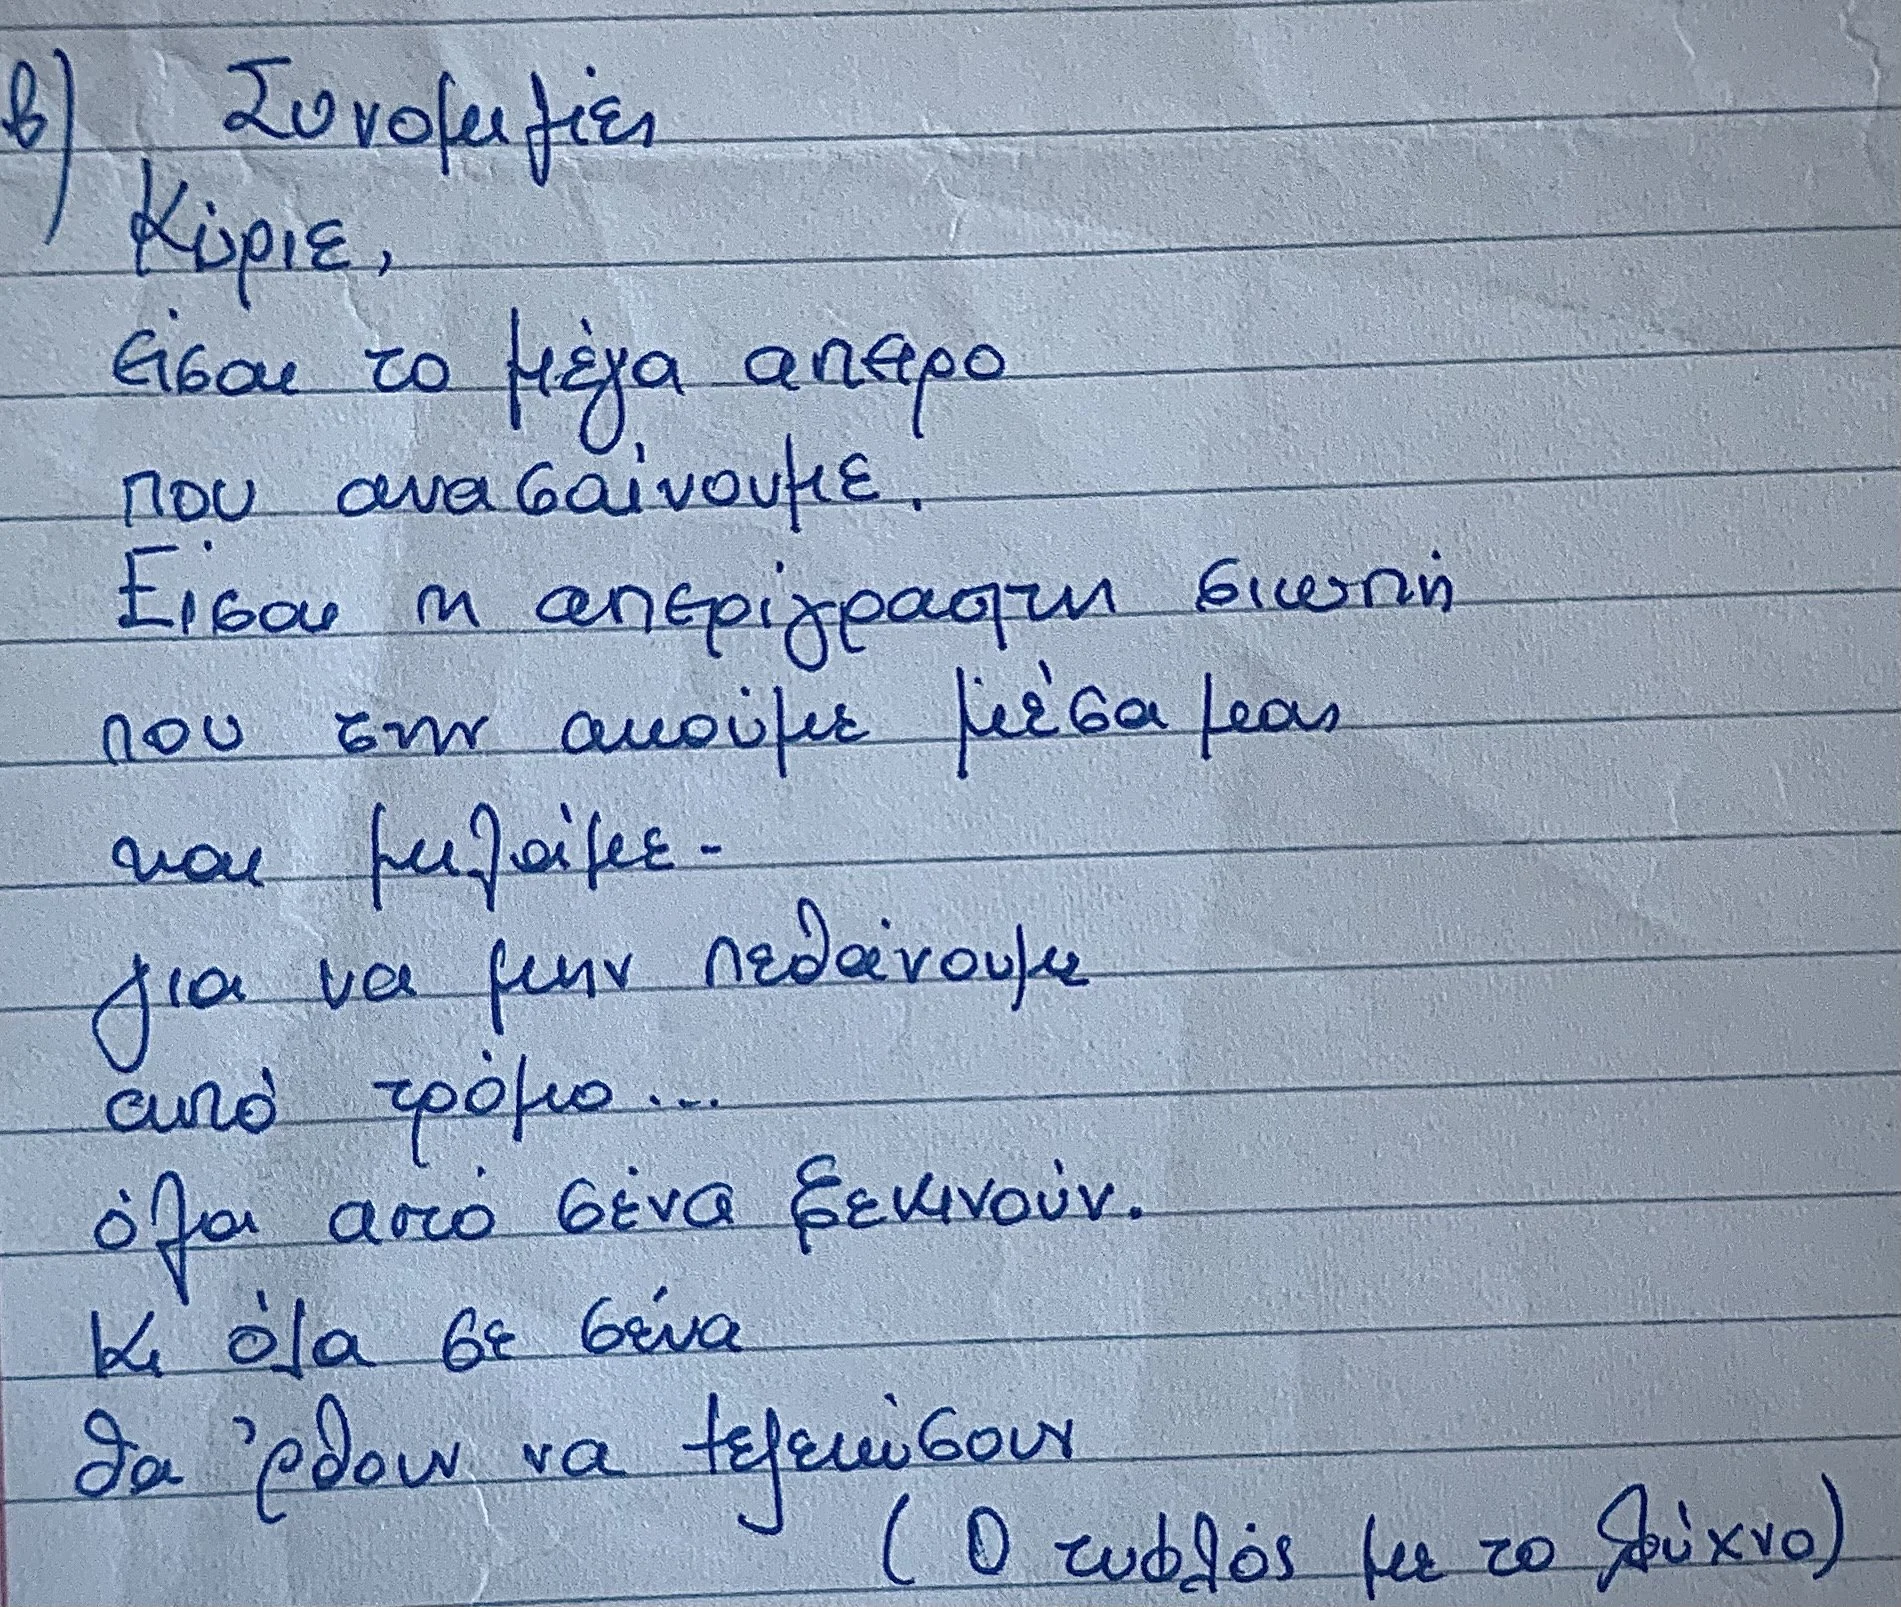 β) Συνομιλίες
Κύριε,
είσαι το μέγα άπειρο
που ανασαίνουμε.
Είσαι η απερίγραφτη σιωπή
που την ακούμε μέσα μας
και μιλάμε -
για να μην πεθαίνουμε
από τρόμο...
όλα από σένα ξεκινούν.
Κι όλα σε σένα
θα 'ρθουν να τελειώσουν
(Ο τυφλός με το λύχνο)